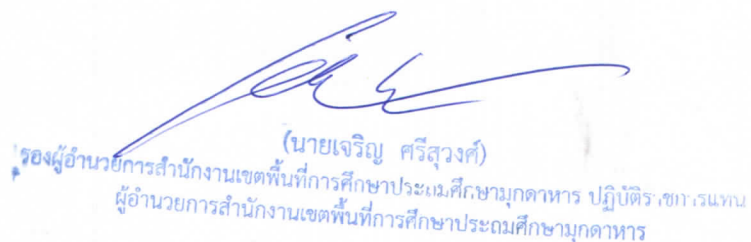 (นายเจริญ ศรีสุวงศ์)
รองผู้อำนวยการสำนักงานเขตพื้นที่การศึกษาประถมศึกษามุกดาหาร ปฏิบัติราชการแทน
ผู้อำนวยการสำนักงานเขตพื้นที่การศึกษาประถมศึกษามุกดาหาร